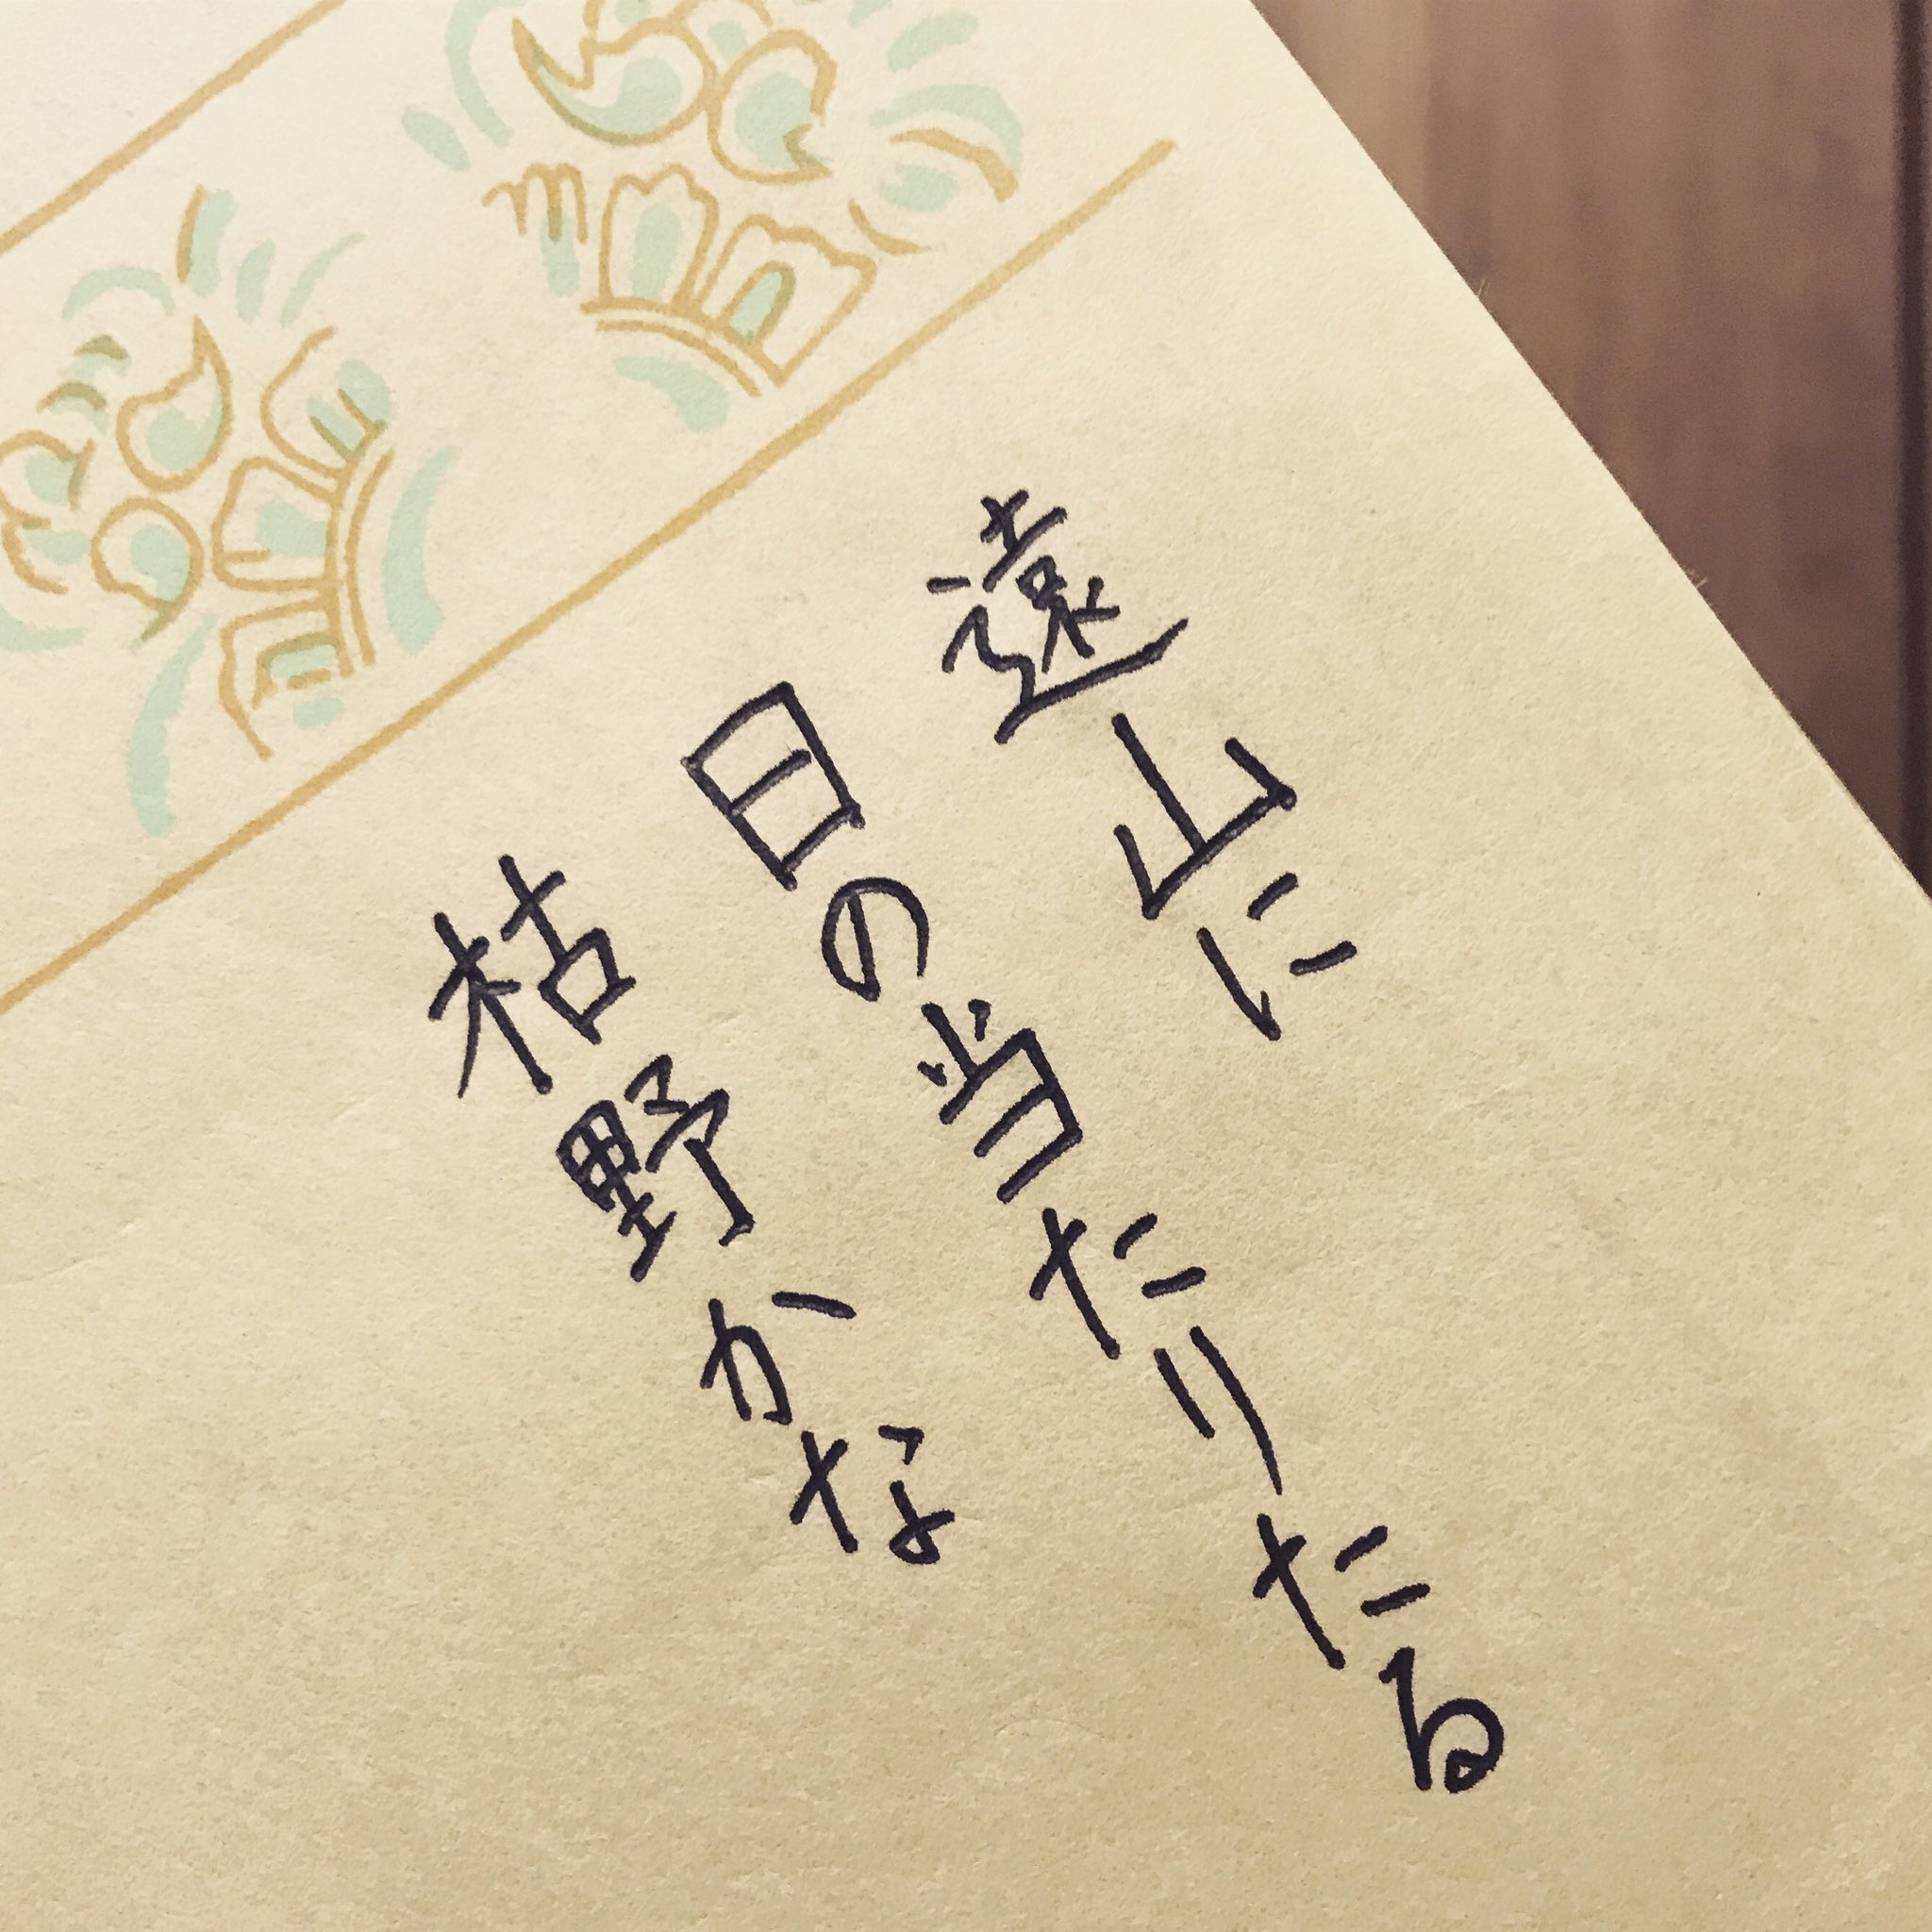 遠山に
日の当たりたる
枯野かな